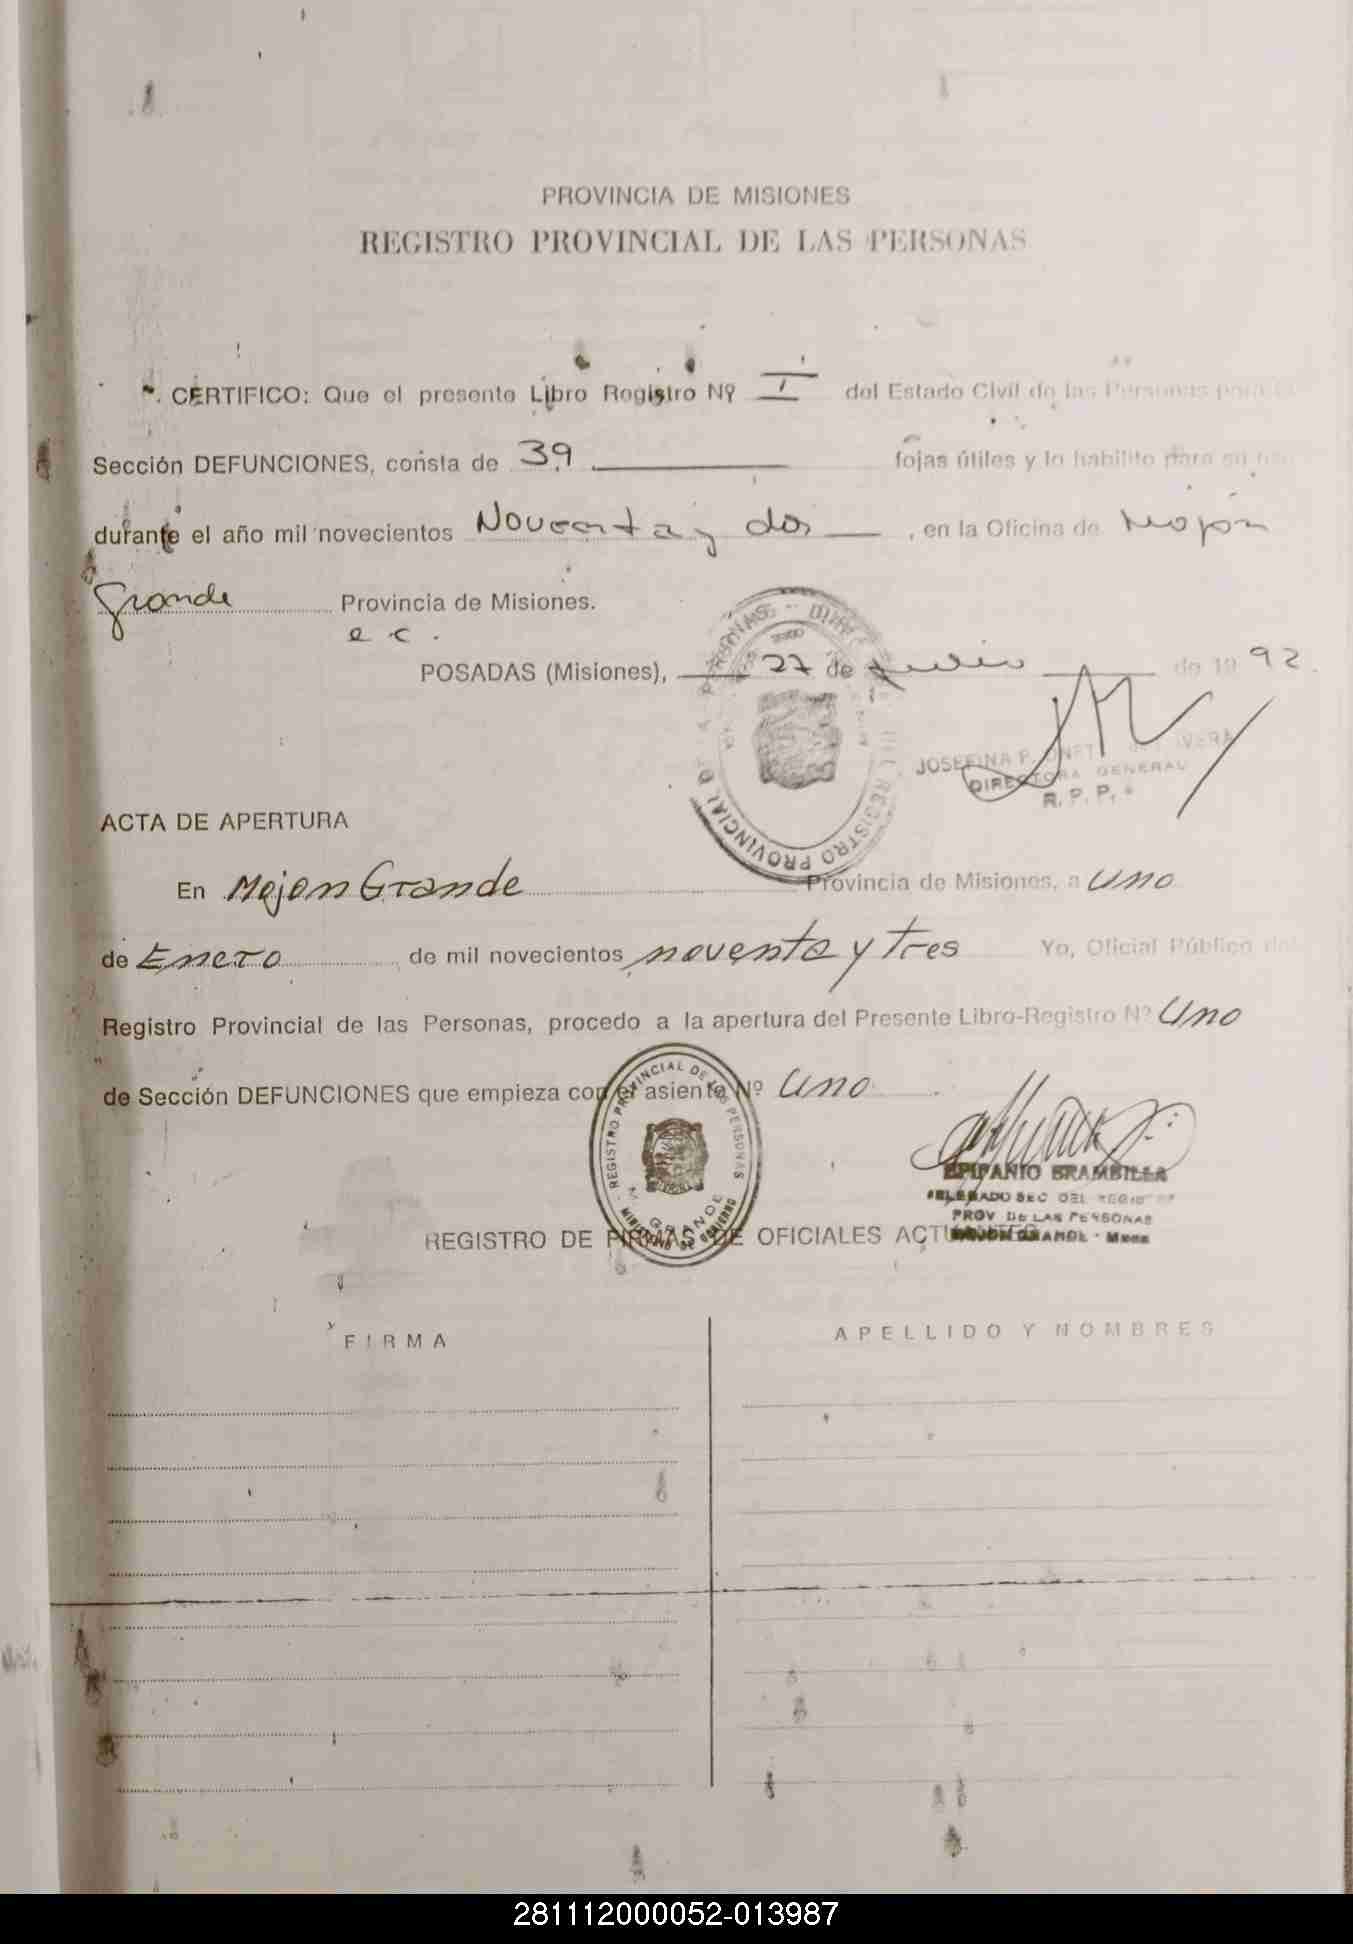 PROVINCIA DE MISIONES
REGISTRO PROVINCIAL DE LAS PERSONAS
CERTIFICO: Que el presente Libro Registro Nº I del Estado Civil de las Personas para la
Sección DEFUNCIONES, consta de 39 fojas útiles y lo habilito para su uso
durante el año mil novecientos Noventa y dos, en la Oficina de Mojón
Grande Provincia de Misiones.
e c.
POSADAS (Misiones), 27 de Julio de 19 92.
JOSEFINA P.
DIRECTORA GENERAL
R. P. P.
ACTA DE APERTURA
En Mojon Grande Provincia de Misiones, a uno
de Enero de mil novecientos noventa y Tres Yo, Oficial Público del
Registro Provincial de las Personas, procedo a la apertura del Presente Libro-Registro Nº Uno
de Sección DEFUNCIONES que empieza con el asiento Nº Uno
REGISTRO PROVINCIAL DE LAS PERSONAS
M. GRANDE
MINISTERIO DE GOBIERNO
EPIFANIO BRAMBILLA
DELEGADO SEC DEL REGISTRO
PROV DE LAS PERSONAS
MOJON GRANDE - Mnes
REGISTRO DE FIRMAS DE OFICIALES ACTUANTES
FIRMA
APELLIDO Y NOMBRES
281112000052-013987